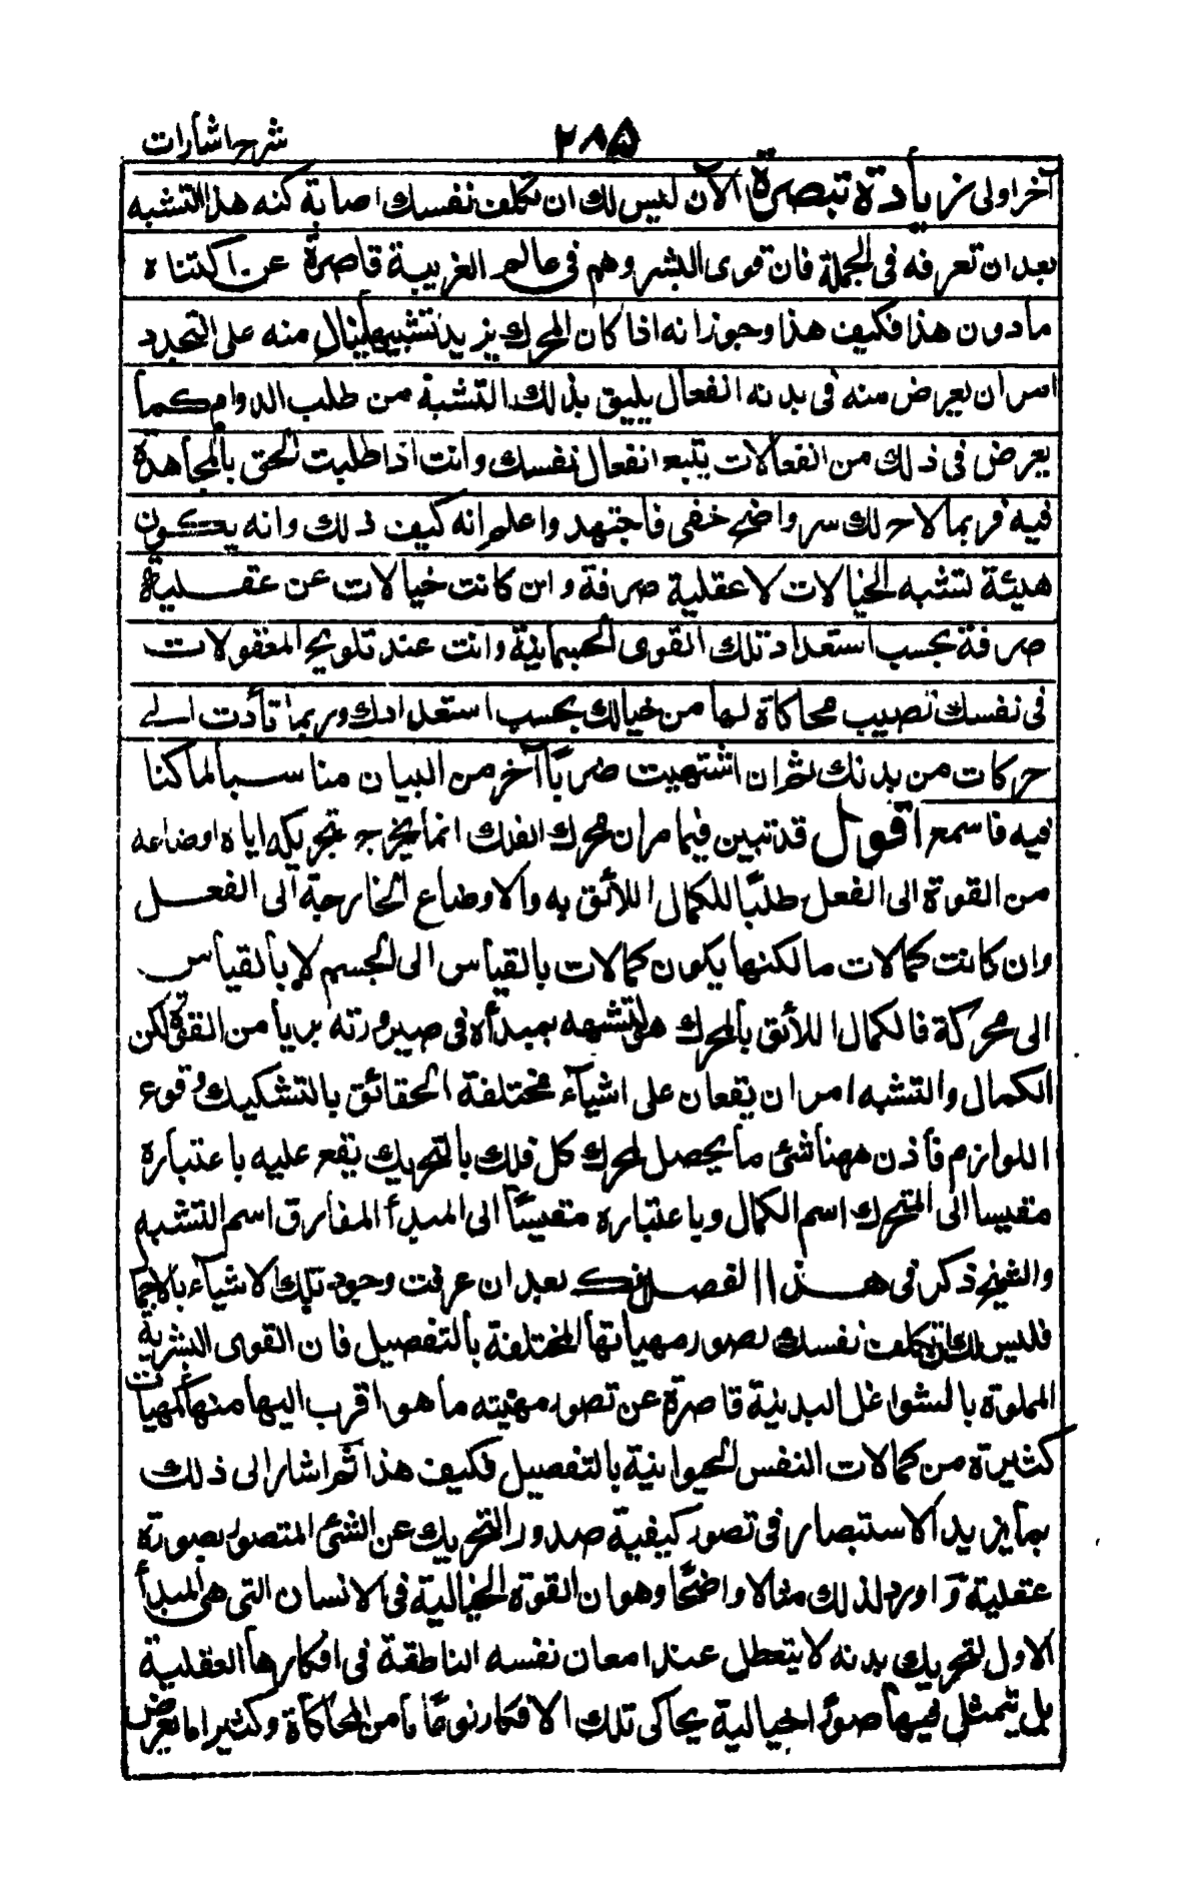 شرح اشارات
٢٨۵
آخر اولى زيادة تبصرة الآن ليس لك ان تكلف نفسك اصابة كنه هذا التشبه
بعد ان تعرفه فى الجملة فان قوى البشر وهم فى عالم الغربية قاصرة عن اكتناه
مادون هذا فكيف هذا وجوز انه اذا كان المحرك يزيد تشبيها لينال منه على التجدد
امر ان يعرض منه فى بدنه انفعال يليق بذلك التشبه من طلب الدوام كما
يعرض فى ذلك من انفعالات يتبع انفعال نفسك وانت اذا طلبت الحق بالمجاهدة
فيه فربما لاح لك سر واضح خفى فاجتهد واعلم انه كيف ذلك وانه يكون
هيئة تشبه الخيالات لا عقلية صرفة وان كانت خيالات عن عقلية
صرفة بحسب استعداد تلك القوى الجسمانية وانت عند تلويح المعقولات
فى نفسك تصيب محاكاة لها من خيالك بحسب استعدادك وربما تأدت الى
حركات من بدنك ثم ان اشتهيت ضربا آخر من البيان مناسبا لما كنا
فيه فاسمع اقول قد تبين فيما مر ان محرك الفلك انما يخرج بتحريكه اياه اوضاعه
من القوة الى الفعل طلبا للكمال اللائق به والاوضاع الخارجة الى الفعل
وان كانت كمالات ما لكنها يكون كمالات بالقياس الى الجسم لا بالقياس
الى محركة فالكمال اللائق بالمحرك هو تشبهه بمبدأه فى صيرورته بريأ من القوة لكن
الكمال والتشبه امر ان يقعان على اشيآء مختلفة الحقائق بالتشكيك وقوع
اللوازم فأذن ههنا شئ ما يحصل لمحرك كل فلك بالتحريك يقع عليه باعتباره
مقيسا الى المتحرك اسم الكمال وباعتباره مقيسا الى المبدأ المفارق اسم التشبه
والشيخ ذكر فى هذا الفصل انك بعد ان عرفت وجود تلك الاشيآء بالاجما
فليس لك ان تكلف نفسك تصور مهياتها المختلفة بالتفصيل فان القوى البشرية
المملوة بالشواغل البدنية قاصرة عن تصور مهيته ما هو اقرب اليها منها كمهيات
كثيرة من كمالات النفس الحيوانية بالتفصيل فكيف هذا ثم اشار الى ذلك
بما يزيد الاستبصار فى تصور كيفية صدور التحريك عن الشئ المتصور بصورة
عقلية و اورد لذلك مثالا واضحا وهو ان القوة الخيالية فى الانسان التى هى المبدأ
الاول لتحريك بدنه لا يتعطل عند امعان نفسه الناطقة فى افكارها العقلية
بل يتمثل فيها صور اخيالية يحاكى تلك الافكار نوعا ما من المحاكاة وكثيرا ما يعرض